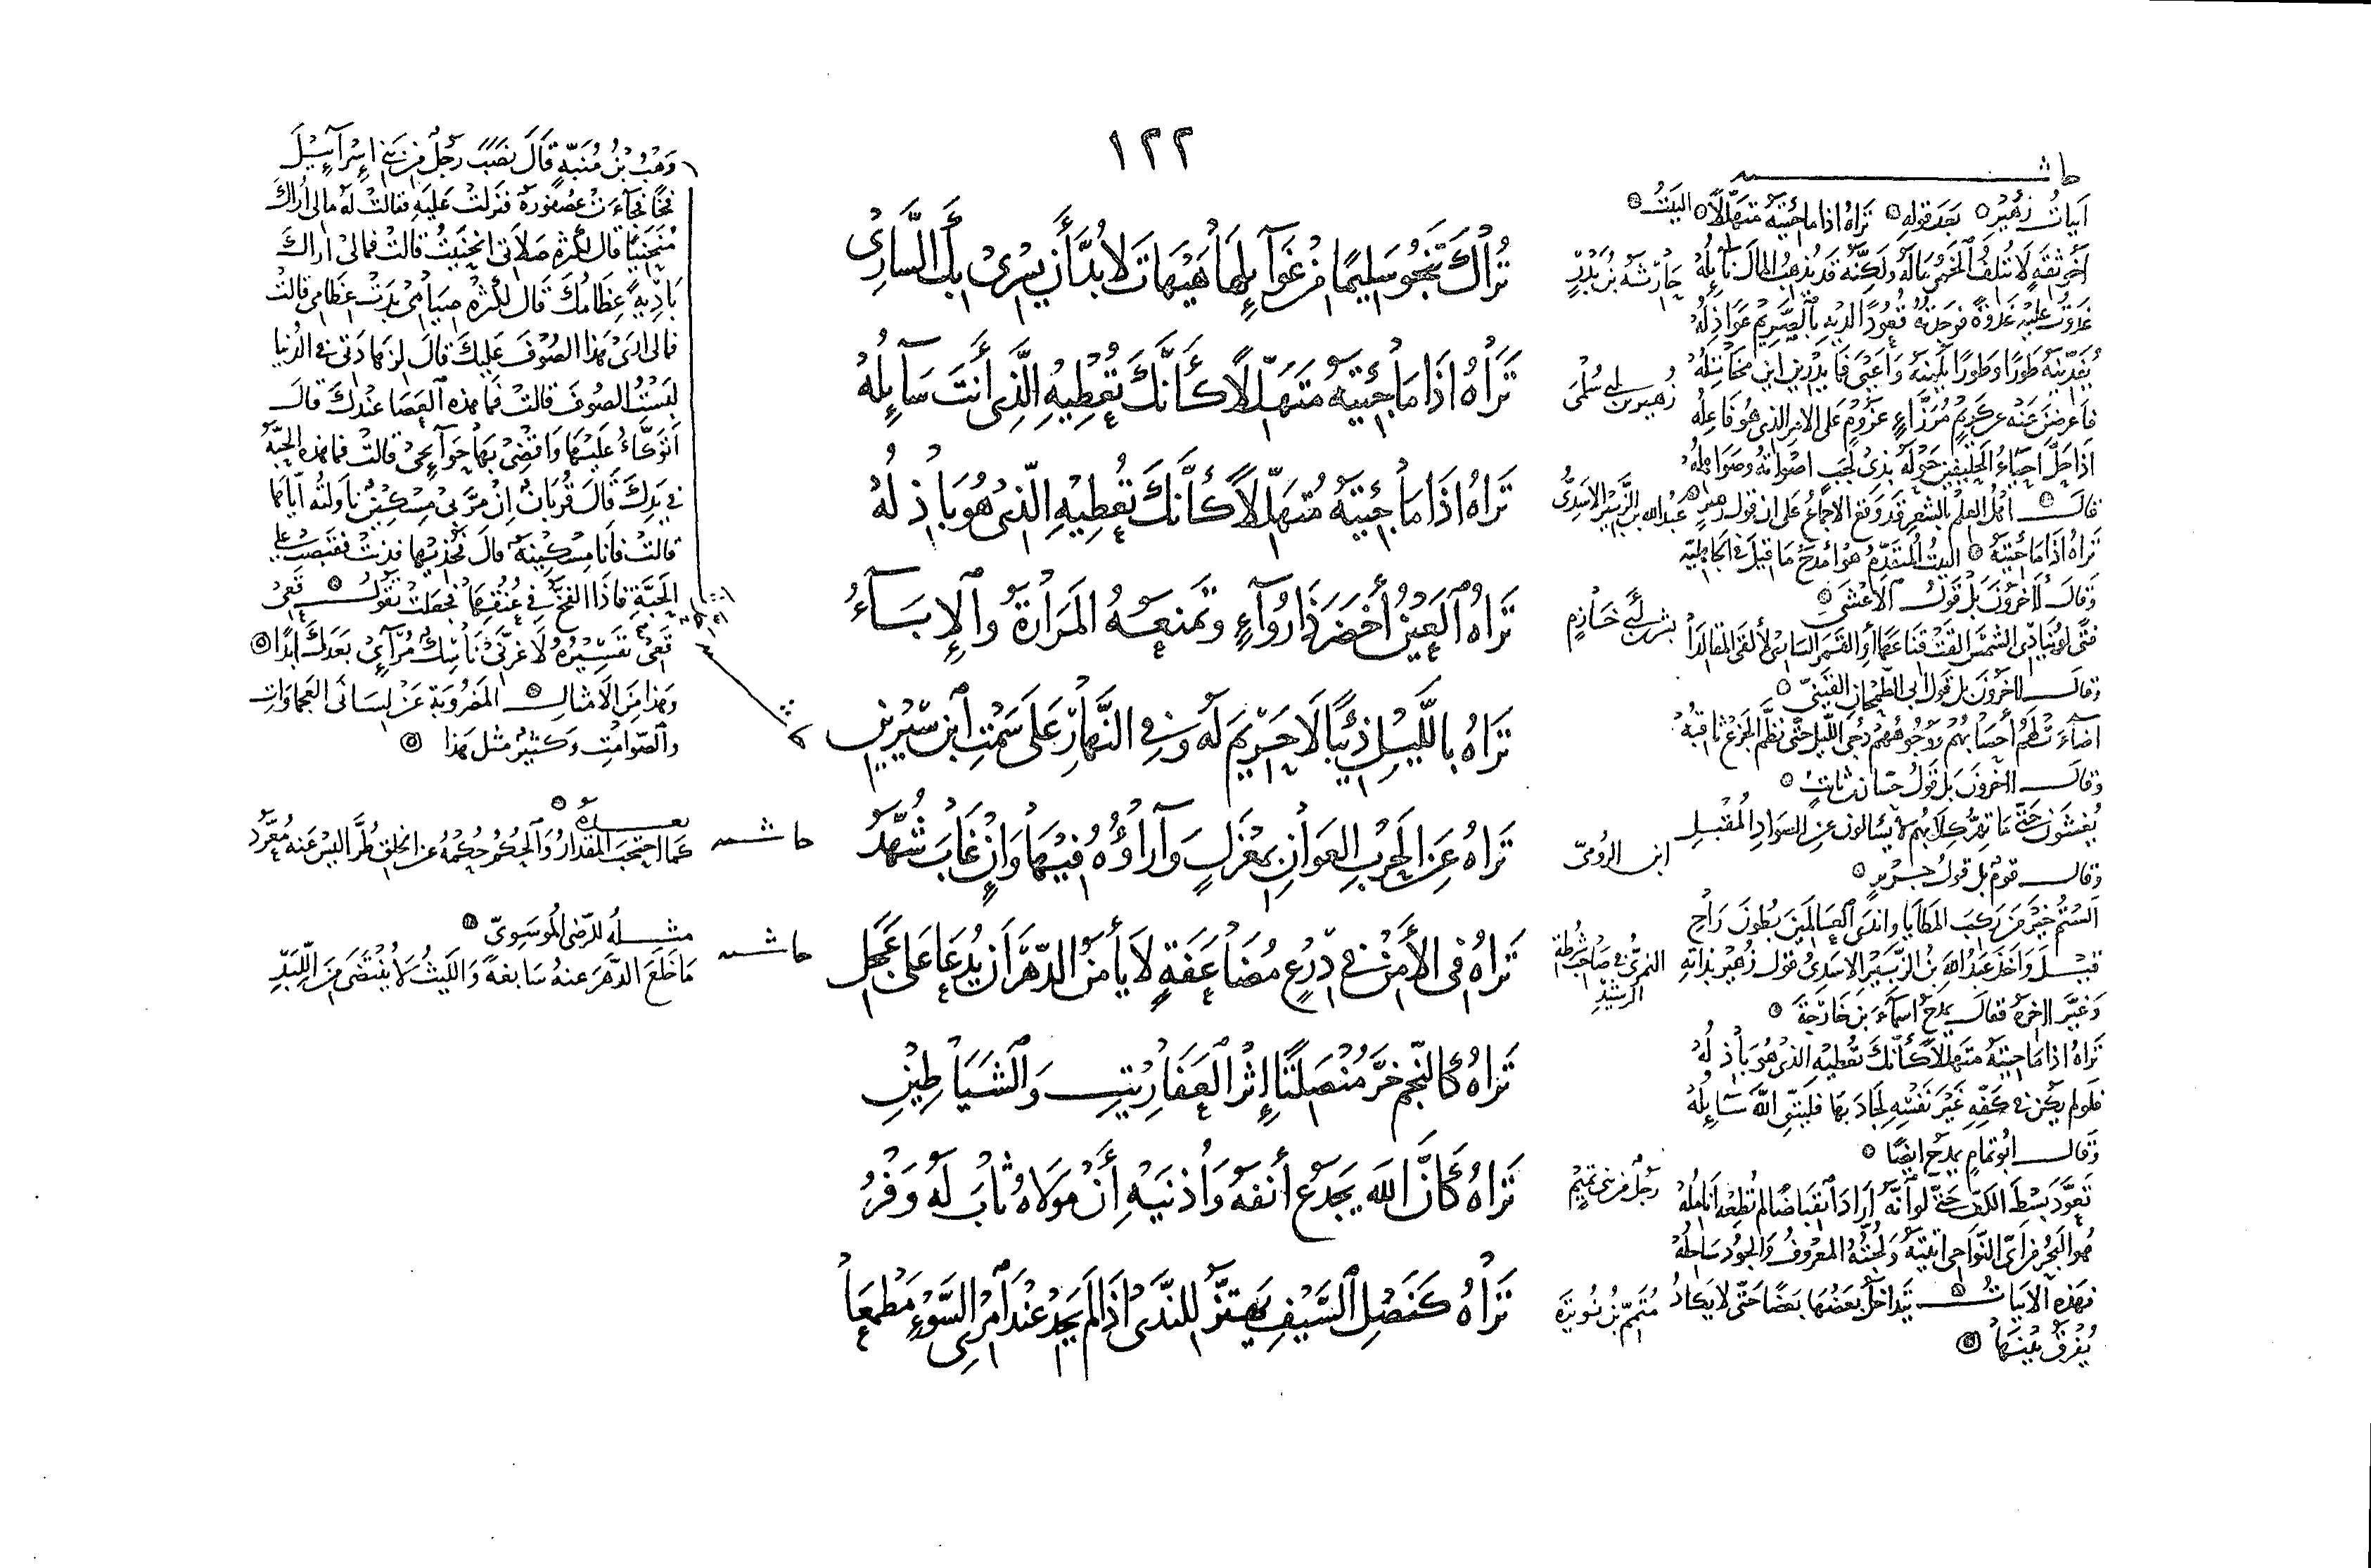 ١٢٢
تُرَاكَ تَنْجُو سَلِيمًا مِنْ غَوَائِلِهَا هَيْهَاتَ لَابُدَّ أَنْ يَسْرِيْ بِكَ السَّارِي
تَرَاهُ إِذَا مَا جِئْتَهُ مُتَهَلِّلًا كَأَنَّكَ تُعْطِيهِ الَّذِي أَنتَ سَآئِلُهُ
تَرَاهُ إِذَا مَا جِئْتَهُ مُتَهَلِّلًا كَأَنَّكَ تُعْطِيهِ الَّذِي هُوَ بَاذِلُهُ
تَرَاهُ الْعَيْنُ أَخْضَرَ ذَا رُوَآءٍ وَتَمْنَعُهُ الْمَرَارَةُ وَالْإِبَآءُ
تَرَاهُ بِاللَّيْلِ ذِئْبًا لَا حَرِيْمَ لَهُ وَفِي النَّهَارِ عَلَى سَمْتِ ابْنِ سِيْرِيْنِ
تَرَاهُ عَنِ الْحَرْبِ الْعَوَانِ بِمَعْزَلٍ وَآرَاؤُهُ فِيْهَا وَإِنْ غَابَ شُهَّدُ
تَرَاهُ فِي الْأَمْنِ فِي دِرْعٍ مُضَاعَفَةٍ لَا يَأْمَنُ الدَّهْرَ أَنْ يُدْعَا عَلَى عَجَلِ
تَرَاهُ كَالنَّجْمِ خَرَّ مُنْصَلِتًا إِثْرَ الْعَفَارِيْتِ وَالشَّيَاطِيْنِ
تَرَاهُ كَأَنَّ اللهَ يَجْدَعُ أَنْفَهُ وَأُذْنَيْهِ أَنْ مَوْلَاهُ ثَابَ لَهُ وَفْرُ
تَرَاهُ كَنَصْلِ السَّيْفِ يَهْتَزُّ لِلنَّدَى إِذَا لَمْ يَجِدْ عِنْدَ امْرِئِ السَّوْءِ مَطْمَعَا
حَارِثَةُ بْنُ بَدْرٍ
زُهَيْرُ بنُ أَبِي سُلْمَى
عَبْدُ اللهِ بن الزَّبِيرِ الأَسَدِيُّ
بِشْرُ بنُ أَبِي خَازِمٍ
ابن الرُّومِيّ
النمريُّ في صَاحِبِ شُرطَةِ
الرشيْدِ
رَجُلٌ مِن بني تَمِيْمٍ
مُتَمِّمُ بْنُ نُوَيْرَةَ
حاشية
أبياتُ زُهَيْرٍ بَعْدَ قولِهِ تَرَاهُ إذا ما جئتَهُ متهَلِّلًا البَيْتُ
أَخُو ثِقَةٍ لَا تُتْلِفُ الْخَمْرُ مَالَهُ وَلَكِنَّهُ قَدْ يُذْهِبُ الْمَالَ نَائِلُهْ
غَدَوْتُ عَلَيْهِ غُدْوَةً فَوَجَدْتُهُ قُعُودًا لَدَيْهِ بِالصَّرِيْمِ عَوَاذِلُهْ
يُفَدِّيْنَهُ طَوْرًا وَطَوْرًا يَلُمْنَهُ وَأَعْيَى فَمَا يَدْرِيْنَ أَيْنَ مَخَاتِلُهْ
فَأَعْرَضْنَ عَنْهُ عَنْ كَرِيْمٍ مُرَزَّاءٍ عَزُومٍ عَلَى الأَمْرِ الَّذِي هُوَ فَاعِلُهْ
إِذَا حَلَّ أَحْيَاءُ الْحَلِيْفَيْنِ حَوْلَهُ بِذِي لَجَبٍ أَصْوَاتُهُ وَصَوَاهِلُهْ
قالَ أَهْلُ العِلْمِ بِالشِّعرِ قَدْ وَقَعَ الإجماعُ على ان قول زُهَيْرٍ
تَرَاهُ إِذَا مَا جِئْتَهُ البيتُ المتقدِّمُ هُوَ أَمْدَحُ مَا قيلَ في الجاهليَّةِ
وَقَالَ آخَرُونَ بَلْ قَوْلُ الأَعْشَى
فَتًى لَوْ يُنَادِي الشَّمْسَ أَلْقَتْ قِنَاعَهَا أَوِ الْقَمَرَ السَّارِي لَأَلْقَى الْمَقَالِدَا
وَقالَ آخَرُونَ بل قولُ أبي الطَّمَحَانِ القَيْنِيِّ
أَضَآءَتْ لَهُمْ أَحْسَابُهُمْ وَوُجُوهُهُمْ دُجَى اللَّيْلِ حَتَّى نَظَّمَ الْجَزْعَ ثَاقِبُهْ
وَقالَ آخرونَ بَلْ قَوْلُ حَسَّانَ بن ثَابِتٍ
يُغْشَوْنَ حَتَّى مَا تَهِرُّ كِلَابُهُمْ لَا يَسْأَلُونَ عَنِ السَّوَادِ الْمُقْبِلِ
وَقالَ قومٌ بل قولُ جَرِيْرٍ
أَلَسْتُمْ خَيْرَ مَنْ رَكِبَ الْمَطَايَا وَأَنْدَى الْعَالَمِيْنَ بُطُونَ رَاحِ
قيْلَ وَأَخَذَ عَبْدُ اللهِ بنُ الزَّبِيْرِ الأَسَدِيُّ قولَ زُهَيْرٍ بِذاتِهِ
وَغَيَّرَ آخِرَهُ فَقَالَ يمدَحُ أَسْمَآءَ بنَ خَارِجَةَ
تَرَاهُ إِذَا مَا جِئْتَهُ مُتَهَلِّلًا كَأَنَّكَ تُعْطِيهِ الَّذِي هُوَ بَاذِلُهْ
فَلَو لَمْ يَكُنْ فِي كَفِّهِ غَيْرَ نَفْسِهِ لَجَادَ بِهَا فَلْيَتَّقِ اللَّهَ سَائِلُهْ
وَقَالَ أبُو تمَّامٍ يمدَحُ أيضًا
تَعَوَّدَ بَسْطَ الْكَفِّ حَتَّى لَوْ أَنَّهُ أَرَادَ انْقِبَاضًا لَمْ تُطِعْهُ أَنَامِلُهْ
هُوَ الْبَحْرُ مِنْ أَيِّ النَّوَاحِي أَتَيْتَهُ وَلُجَّتُهُ الْمَعْرُوفُ وَالْجُودُ سَاحِلُهْ
فَهَذِهِ الأَبْيَاتُ يَتَدَاخَلُ بَعْضُهَا بَعْضًا حَتَّى لَا يَكَادُ
يُفْرَقُ بَيْنَهَا
وَهْبُ بْنُ مُنَبِّهٍ قَالَ نَصَبَ رَجُلٌ مِنْ بَنِي إِسْرَآئِيْلَ
فَخًّا فَجَآءَتْ عُصْفُورَةٌ فَنَزَلَتْ عَلَيْهِ فَقَالَتْ لَهُ مَا لِي أَرَاكَ
مُنْحَنِيًا قَالَ لِكَثْرَةِ صَلَاتِي انْحَنَيْتُ قَالَتْ فَمَا لِي أَرَاكَ
بَادِيَةً عِظَامُكَ قَالَ لِكَثْرَةِ صِيَامِي بَدَتْ عِظَامِي قَالَتْ
فَمَا لِي أَرَى هَذَا الصُّوفَ عَلَيْكَ قَالَ لِزَهَادَتِي فِي الدُّنْيَا
لَبِسْتُ الصُّوفَ قَالَتْ فَمَا هَذِهِ الْعَصَا عِنْدَكَ قَالَ
أَتَوَكَّاءُ عَلَيْهَا وَأَقْضِي بِهَا حَوَآئِجِي قَالَتْ فَمَا هَذِهِ الْحَبَّةُ
فِي يَدِكَ قَالَ قُرْبَانٌ إِنْ مَرَّ بِي مِسْكِيْنٌ نَاوَلْتُهُ إِيَّاهَا
قَالَتْ فَأَنَا مِسْكِيْنَةٌ قَالَ فَخُذِيْهَا فَدَنَتْ فَقَبَضَتْ عَلَى
الْحَبَّةِ فَإِذَا الْفَخُّ فِي عُنُقِهَا فَجَعَلَتْ تَقُولُ قَعِي
قَعِي تَفْسِيْرُهُ لَا غَرَّنِي نَاسِكٌ مُرَآءٍ بَعْدَكَ أَبَدًا
وَهَذَا مِنَ الأَمْثَالِ الْمَضْرُوبَةِ عَنْ لِسَانِ الْعَجْمَاوَاتِ
وَالصَّوَامِتِ وَكَثِيْرٌ مِثْلُ هَذَا
حاشية
بعده
كَمَا احْتَجَبَ الْمِقْدَارُ وَالْحُكْمُ حُكْمُهُ عَنِ الْخَلْقِ طُرًّا لَيْسَ عَنْهُ مُعَرِّدُ
حاشية
مثلُهُ للرَّضِي الْمُوسَوِيّ
مَا خَلَعَ الدَّهْرَ عَنْهُ سَابِغَةً وَاللَّيْثُ لَا يُنْتَضَى مِنَ اللِّبَدِ